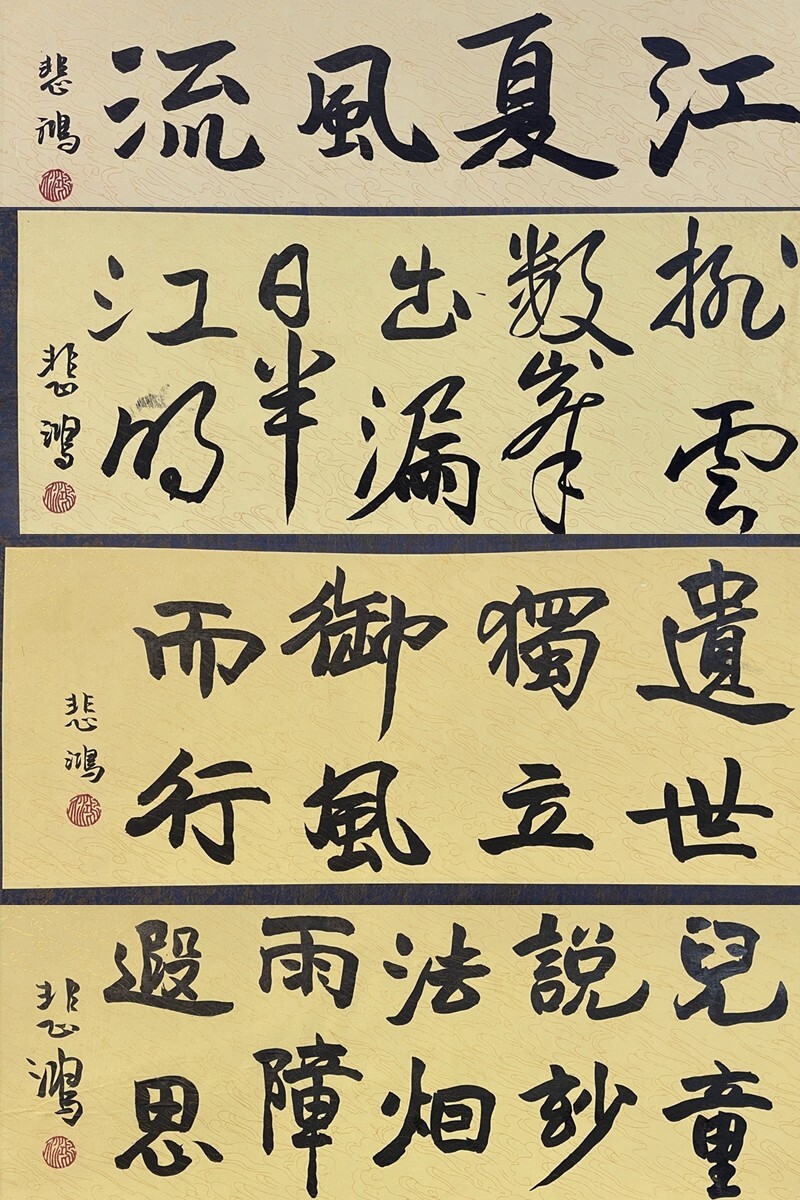 江夏風流
悲鴻
排雲
数峯
出漏
日半
江明
悲鴻
遺世
獨立
御風
而行
悲鴻
兒童
説玅
法烟
雨障
遐思
悲鴻